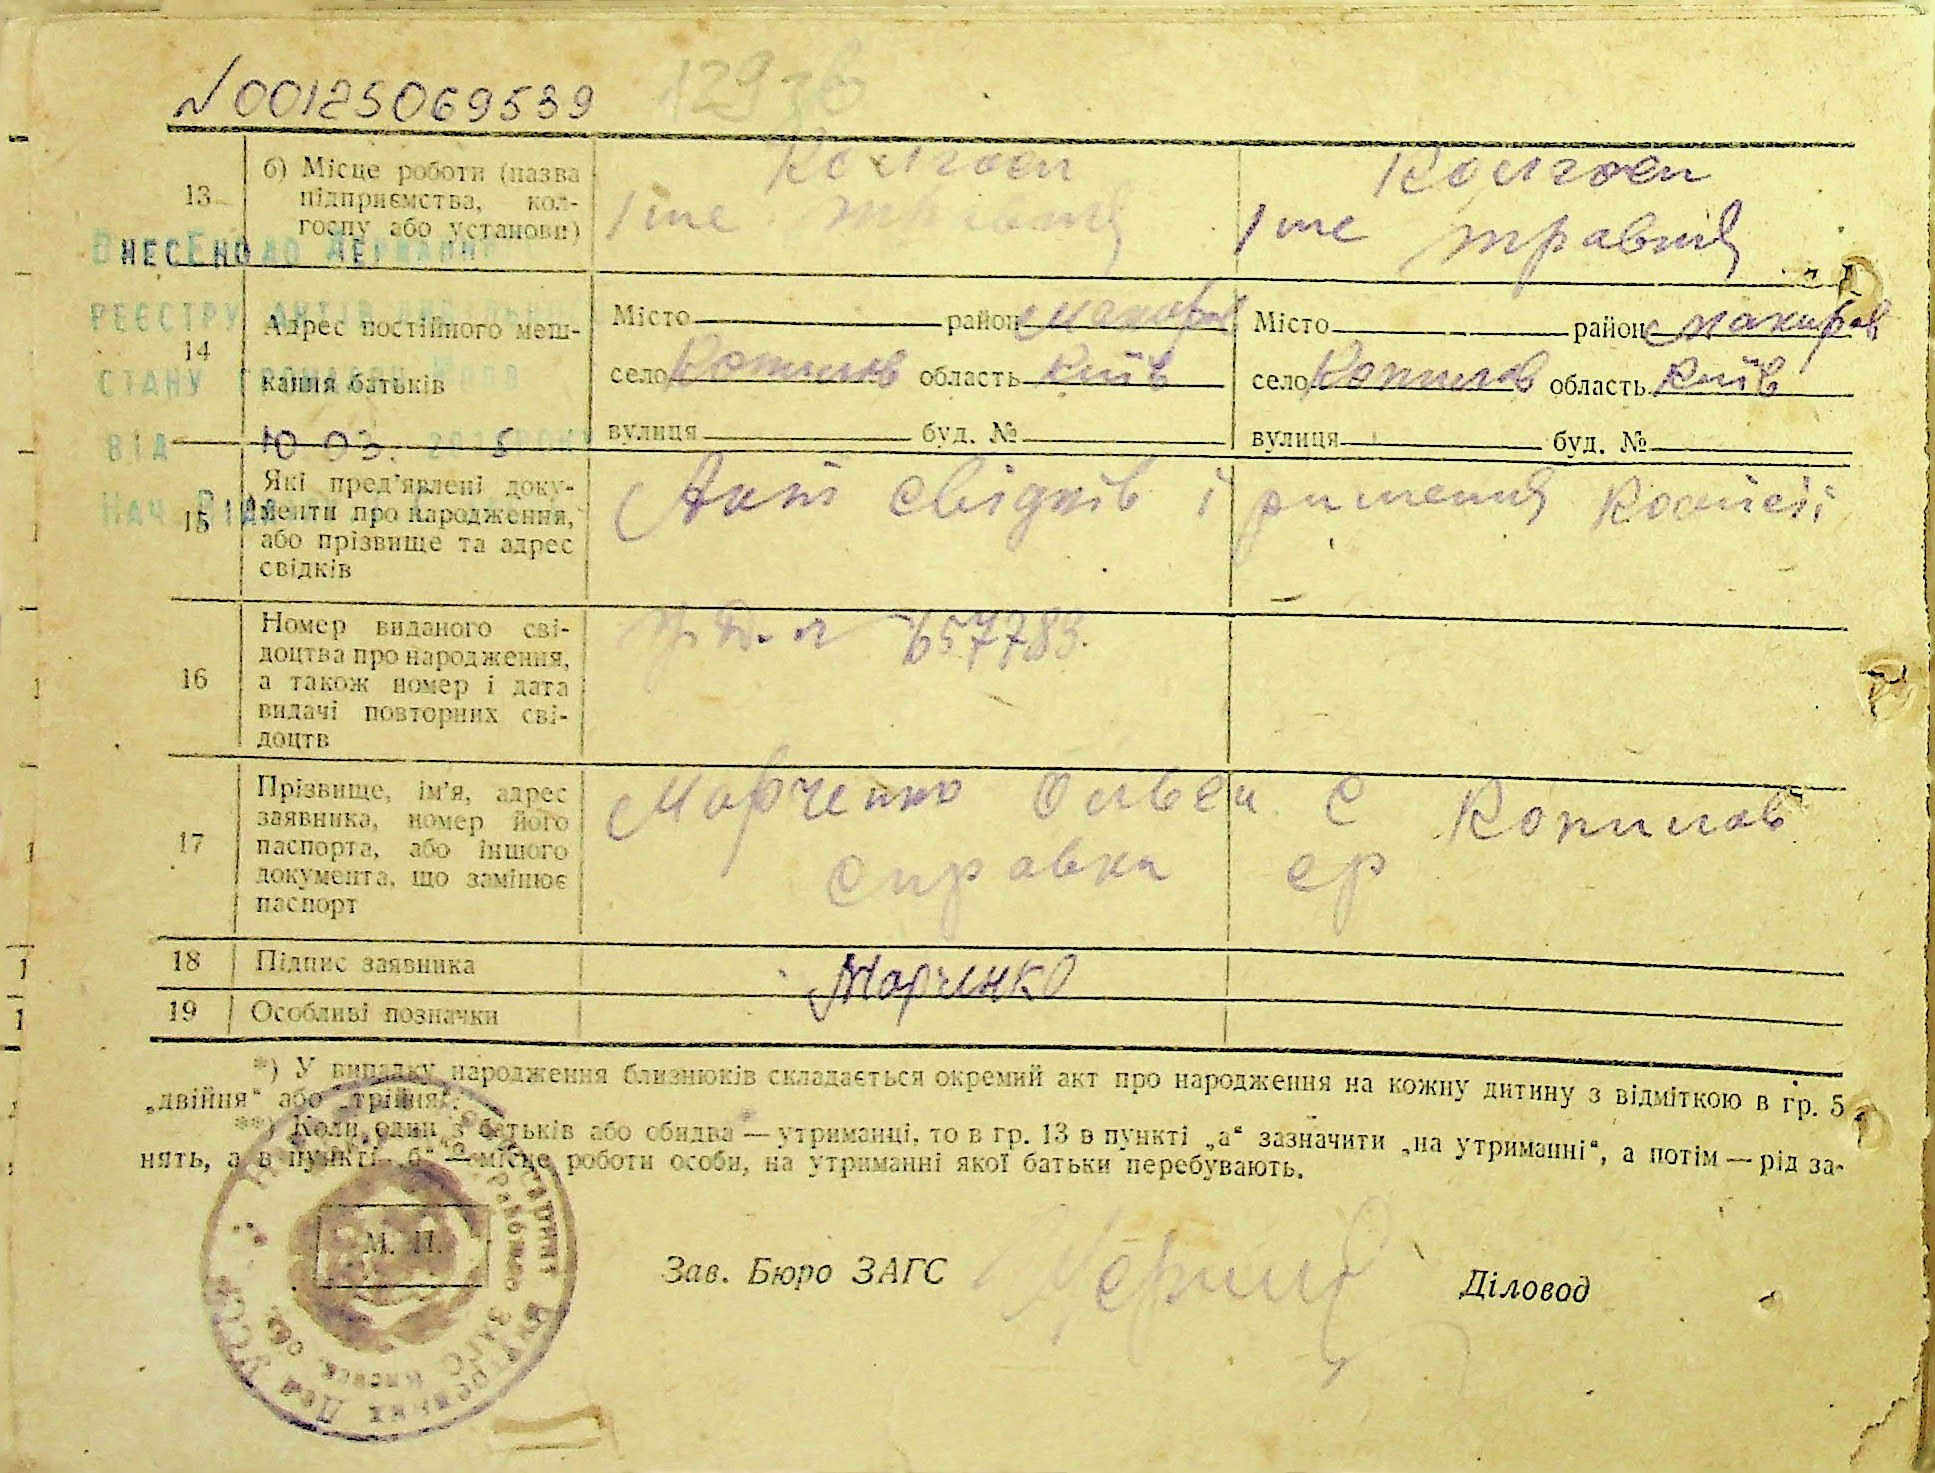 N00125069539
129 зв
13
б) Місце роботи (назва
підприємства, кол-
госпу або установи)
Колгосп
1 ше травня
Колгосп
1 ше травня
14
Адрес постійного меш-
кання батьків
Місто район Макарів
село Копилов область Київ
вулиця буд. №
Місто район Макарів
село Копилов область Київ
вулиця буд. №
Внесено до Державн
реєстру актів цивільного
стану громадян
від 10 03. 2015 року
Нач. Відд
15
Які пред'явлені доку-
менти про народження,
або прізвище та адрес
свідків
Акт свідків і рішення комісії
16
Номер виданого сві-
доцтва про народження,
а також номер і дата
видачі повторних сві-
доцтв
657783.
17
Прізвище, ім'я, адрес
заявника, номер його
паспорта, або іншого
документа, що замінює
паспорт
Марченко с Копилов
справка ср
18
Підпис заявника
Марченко
19
Особливі позначки
*) У випадку народження близнюків складається окремий акт про народження на кожну дитину з відміткою в гр. 5
„двійня“ або „трійня“.
**) Коли один з батьків або обидва — утриманці, то в гр. 13 в пункті „а“ зазначити „на утриманні“, а потім — рід за-
нять, а в пункті „б“ — місце роботи особи, на утриманні якої батьки перебувають.
М. П.
Зав. Бюро ЗАГС
Діловод